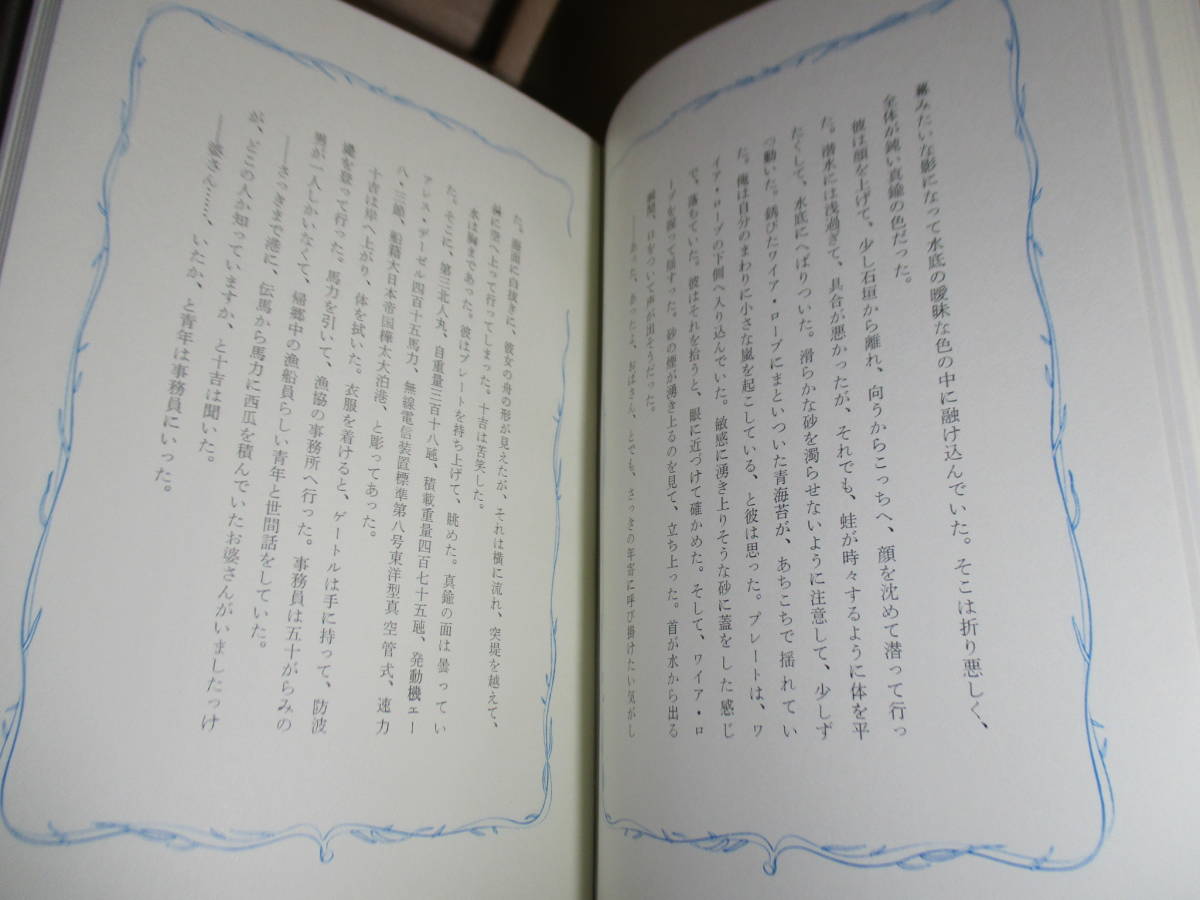 みたいな影になって水底の曖昧な色の中に融け込んでいた。そこは折り悪しく、
全体が鈍い真鍮の色だった。
彼は顔を上げて、少し石垣から離れ、向うからこっちへ、顔を沈めて潜って行っ
た。潜水には浅過ぎて、具合が悪かったが、それでも、蛙が時々するように体を平
たくして、水底にへばりついた。滑らかな砂を濁らせないように注意して、少しず
つ動いた。錆びたワイア・ロープにまといついた青海苔が、あちこちで揺れてい
た。俺は自分のまわりに小さな嵐を起こしている、と彼は思った。プレートは、ワ
イア・ロープの下側へ入り込んでいた。敏感に湧き上りそうな砂に蓋をした感じ
で、落ちていた。彼はそれを拾うと、眼に近づけて確かめた。そして、ワイア・ロ
ープを揺って揺すった。砂の煙が湧き上るのを見て、立ち上った。首が水から出る
瞬間、口をついて声が出そうだった。
――あった、あったよ、おばさん、とでも、さっきの年寄に呼び掛けたい気がし
た。海面に白抜きに、彼女の舟の形が見えたが、それは横に流れ、突堤を越えて、
に空へ上って行ってしまった。十吉は苦笑した。
水は胸まであった。彼はプレートを持ち上げて、眺めた。真鍮の面は曇ってい
た。そこに、第三北人丸、自重量三百十八瓲、積載重量四百七十五瓲、発動機エー
アレス・デーゼル四百十五馬力、無線電信装置標準第八号東洋型真空管式、速力
八・三節、船籍大日本帝国樺太大泊港、と彫ってあった。
十吉は岸へ上がり、体を拭いた。衣服を着けると、ゲートルは手に持って、防波
堤を登って行った。馬力を引いて、漁協の事務所へ行った。事務員は五十がらみの
男が一人しかいなくて、帰郷中の漁船員らしい青年と世間話をしていた。
――さっきまで港に、伝馬から馬力に西瓜を積んでいたお婆さんがいましたっけ
が、どこの人か知っていますか、と十吉は聞いた。
――婆さん……、いたか、と青年は事務員にいった。